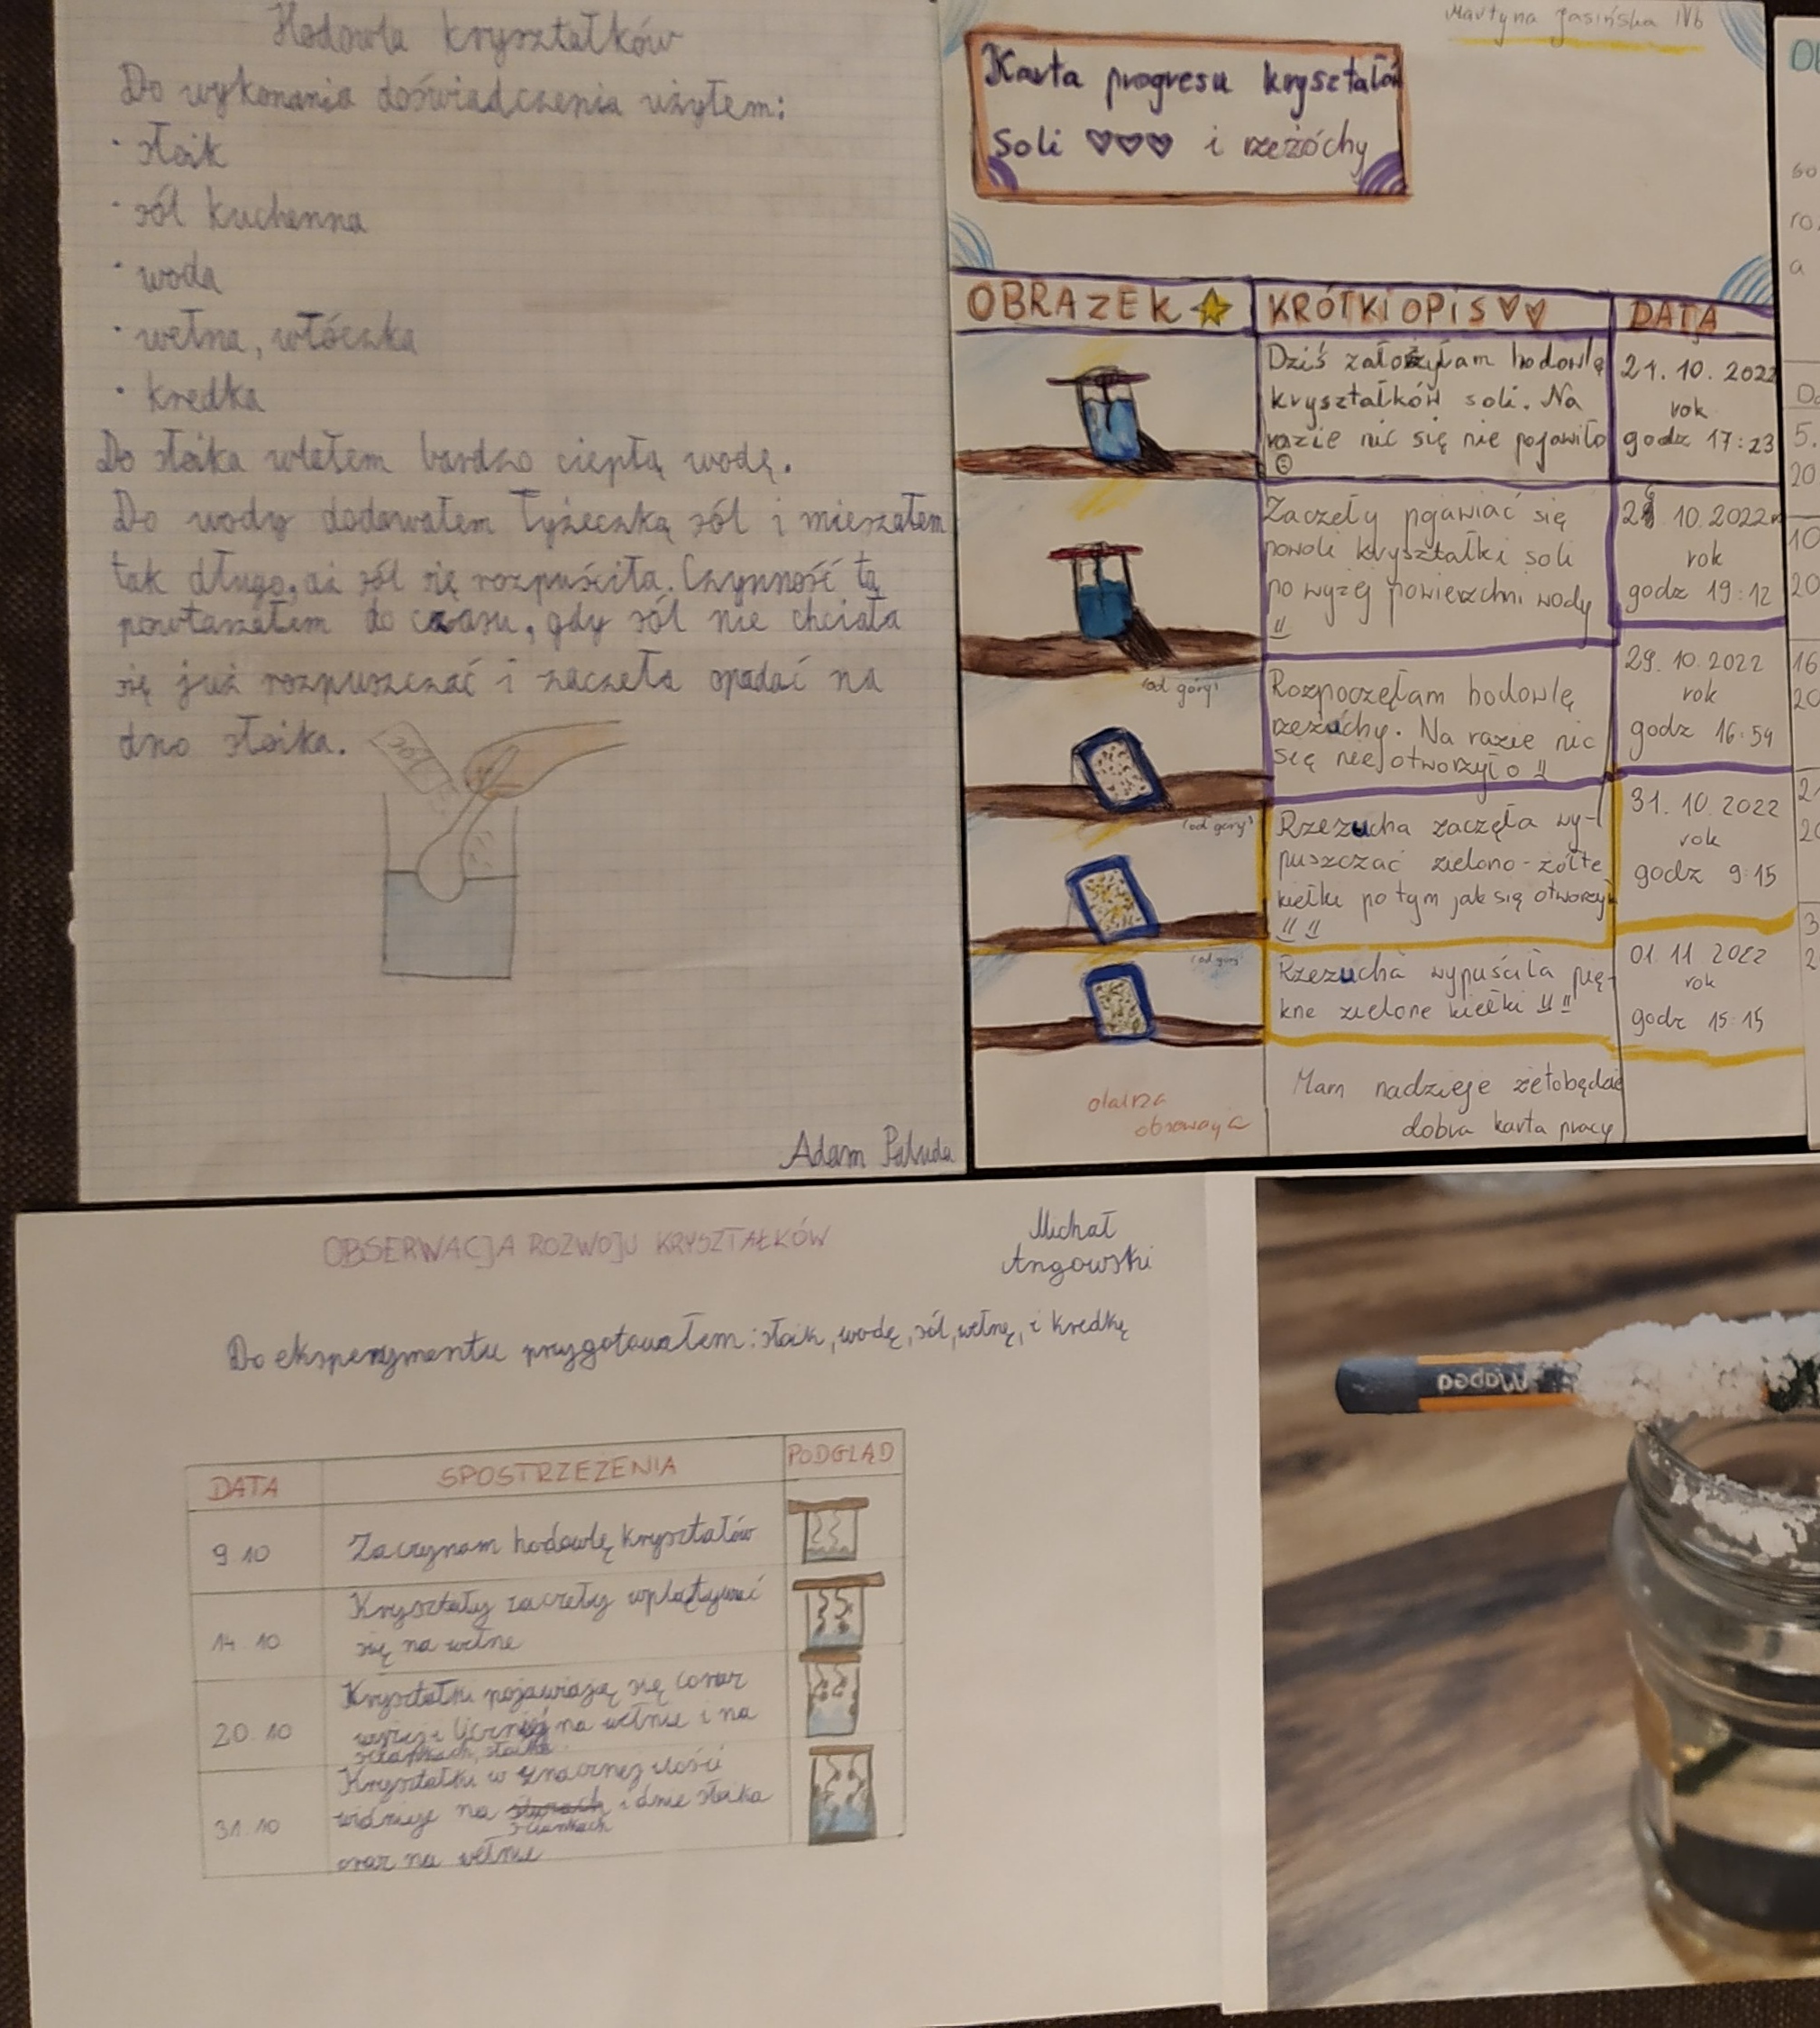 Hodowla kryształków
Do wykonania doświadczenia użyłem:
• słoik
• sól kuchenna
• woda
• wełna, włóczka
• kredka
Do słoika wlałem bardzo ciepłą wodę.
Do wody dodawałem łyżeczką sól i mieszałem
tak długo, aż sól się rozpuściła. Czynność tą
powtarzałem do czasu, gdy sól nie chciała
się już rozpuszczać i zaczęła opadać na
dno słoika.
SÓL
Adam Paluda
Martyna Jasińska IVb
Karta progresu kryształów
Soli ♡♡♡ i rzeżóchy
OBRAZEK KRÓTKI OPIS ♡♡ DATA
Dziś założyłam hodowlę
kryształków soli. Na
razie nic się nie pojawiło
21. 10. 2022
rok
godz 17:23
Zaczeły pojawiać się
powoli kryształki soli
po wyżej powierzchni wody
10. 2022
rok
godz 19:12
(od góry)
Rozpoczęłam hodowlę
rzeżuchy. Na razie nic
się nie otworzyło
29. 10. 2022
rok
godz 16:59
(od góry)
Rzezucha zaczęła wy-
puszczać zielono-żółte
kiełki po tym jak się otworzył
31. 10. 2022
rok
godz 9:15
(od góry)
Rzezucha wypuściła pię-
kne zielone kiełki
01. 11 2022
rok
godz 15:15
Mam nadzieje że to będzie
dobra karta pracy
OBSERWACJA ROZWOJU KRYSZTAŁKÓW
Michał
Angowski
Do eksperymentu przygotowałem: słoik, wodę, sól, wełnę, i kredkę
DATA SPOSTRZEŻENIA PODGLĄD
9 10 Zaczynam hodowlę kryształów
14. 10 Kryształy zaczęły wplątywać
się na wełne
20. 10 Kryształki pojawiają się coraz
na wełnie i na
ściankach słoika
31. 10 Kryształki w znacznej ilości
widnieje na i dnie słoika
ściankach
oraz na wełnie
Maped